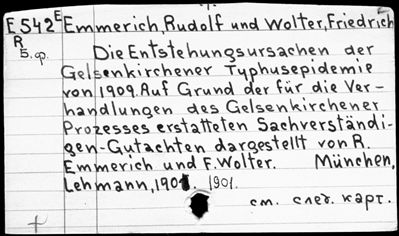 E 542 E Emmerich, Rudolf und Wolter, Friedrich
R
5.φ.
Die Entstehungsursachen der
Gelsenkirchener Typhusepidemie
von 1909. Auf Grund der für die Ver-
handlungen des Gelsenkirchener
Prozesses erstatteten Sachverständi-
gen-Gutachten dargestellt von R.
Emmerich und F. Wolter. München,
Lehmann, 1901. 1901.
см. след. карт.